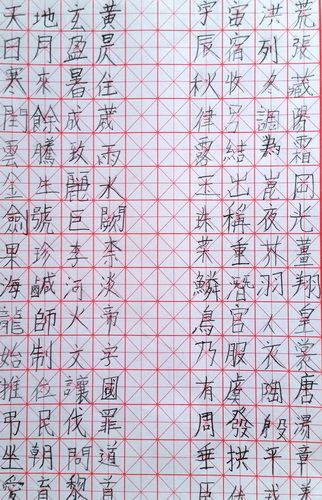 天地玄黃 宇宙洪荒
日月盈昃 辰宿列張
寒來暑往 秋收冬藏
閏餘成歲 律呂調陽
雲騰致雨 露結為霜
金生麗水 玉出崑岡
劍號巨闕 珠稱夜光
果珍李柰 菜重芥薑
海鹹河淡 鱗潛羽翔
龍師火帝 鳥官人皇
始制文字 乃服衣裳
推位讓國 有虞陶唐
弔民伐罪 周發殷湯
坐朝問道 垂拱平章
愛育黎首